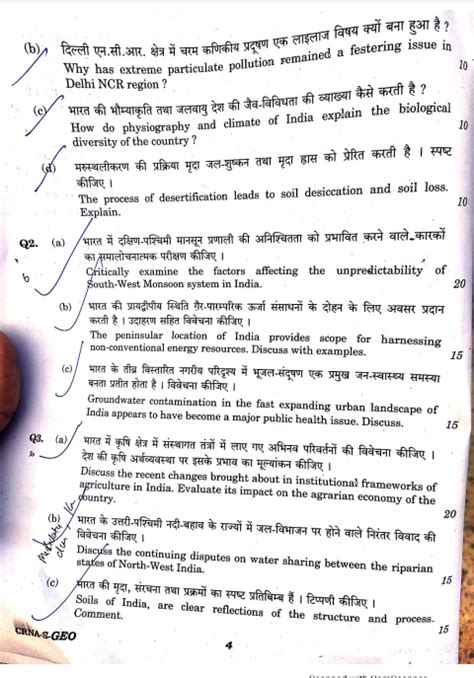 (b) दिल्ली एन.सी.आर. क्षेत्र में चरम कणिकीय प्रदूषण एक लाइलाज विषय क्यों बना हुआ है ?
Why has extreme particulate pollution remained a festering issue in
Delhi NCR region ? 10
(c) भारत की भौम्याकृति तथा जलवायु देश की जैव-विविधता की व्याख्या कैसे करती है ?
How do physiography and climate of India explain the biological
diversity of the country ? 10
(d) मरुस्थलीकरण की प्रक्रिया मृदा जल-शुष्कन तथा मृदा ह्रास को प्रेरित करती है । स्पष्ट
कीजिए ।
The process of desertification leads to soil desiccation and soil loss.
Explain. 10
Q2. (a) भारत में दक्षिण-पश्चिमी मानसून प्रणाली की अनिश्चितता को प्रभावित करने वाले कारकों
का समालोचनात्मक परीक्षण कीजिए ।
Critically examine the factors affecting the unpredictability of
South-West Monsoon system in India. 20
(b) भारत की प्रायद्वीपीय स्थिति ग़ैर-पारम्परिक ऊर्जा संसाधनों के दोहन के लिए अवसर प्रदान
करती है । उदाहरण सहित विवेचना कीजिए ।
The peninsular location of India provides scope for harnessing
non-conventional energy resources. Discuss with examples. 15
(c) भारत के तीव्र विस्तारित नगरीय परिदृश्य में भूजल-संदूषण एक प्रमुख जन-स्वास्थ्य समस्या
बनता प्रतीत होता है । विवेचना कीजिए ।
Groundwater contamination in the fast expanding urban landscape of
India appears to have become a major public health issue. Discuss. 15
Q3. (a) भारत में कृषि क्षेत्र में संस्थागत तंत्रों में लाए गए अभिनव परिवर्तनों की विवेचना कीजिए ।
देश की कृषि अर्थव्यवस्था पर इसके प्रभाव का मूल्यांकन कीजिए ।
Discuss the recent changes brought about in institutional frameworks of
agriculture in India. Evaluate its impact on the agrarian economy of the
country. 20
(b) भारत के उत्तरी-पश्चिमी नदी-बहाव के राज्यों में जल-विभाजन पर होने वाले निरंतर विवाद की
विवेचना कीजिए ।
Discuss the continuing disputes on water sharing between the riparian
states of North-West India. 15
(c) भारत की मृदा, संरचना तथा प्रक्रमों का स्पष्ट प्रतिबिम्ब हैं । टिप्पणी कीजिए ।
Soils of India, are clear reflections of the structure and process.
Comment. 15
CRNA-S-GEO
4